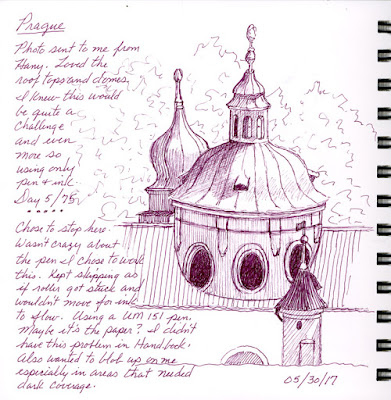 Prague
Photo sent to me from
Hany. Loved the
roof tops and domes.
I knew this would
be quite a
challenge
and even
more so
using only
pen & ink.
Day 5/75
Chose to stop here.
Wasn't crazy about
the pen I chose to work
this. Kept skipping as
if roller got stuck and
wouldn't move for ink
to flow. Using a UM 151 pen.
Maybe it's the paper? I didn't
have this problem in Handbook.
Also wanted to blob up on me
especially in areas that needed
dark coverage.
05/30/17